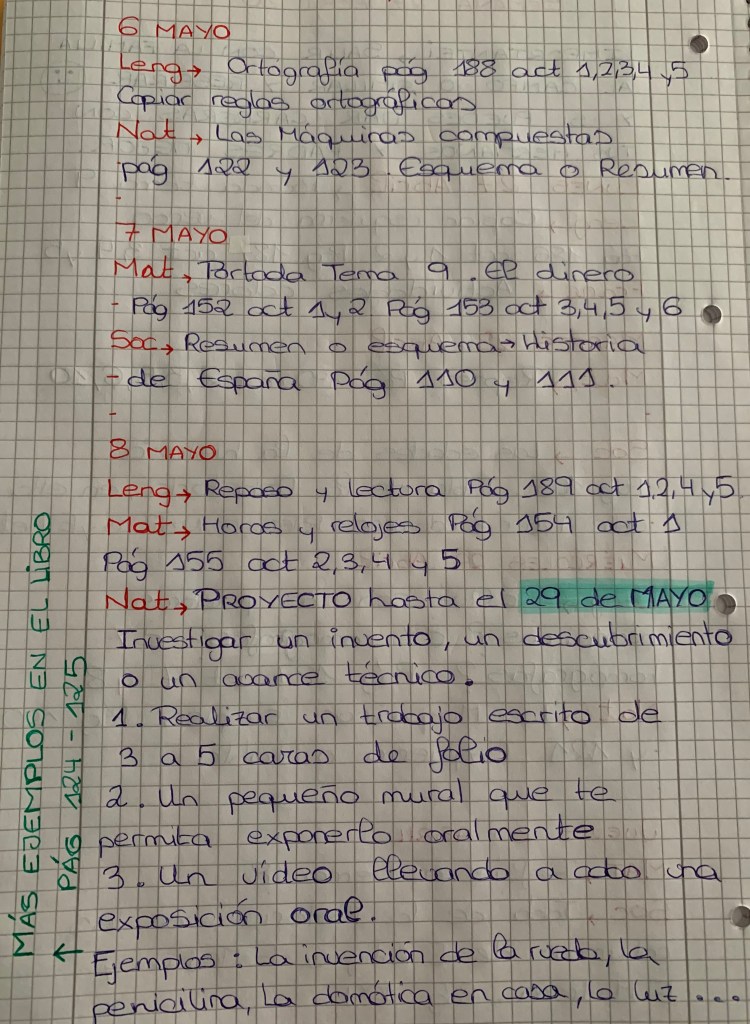 6 MAYO
Leng → Ortografía pág 188 act 1,2,3,4 y 5
Copiar reglas ortográficas
Nat → Las Máquinas compuestas
pág 122 y 123. Esquema o Resumen.
7 MAYO
Mat → Portada Tema 9. El dinero
- Pág 152 act 1 y 2 Pág 153 act 3,4,5 y 6
Soc → Resumen o esquema → Historia
- de España Pág 110 y 111.
-
8 MAYO
Leng → Repaso y lectura Pág 189 act 1,2,4 y 5
Mat → Horas y relojes Pág 154 act 1
Pág 155 act 2,3,4 y 5
Nat → PROYECTO hasta el 29 de MAYO
Investigar un invento, un descubrimiento
o un avance técnico.
1. Realizar un trabajo escrito de
3 a 5 caras de folio
2. Un pequeño mural que te
permita exponerlo oralmente
3. Un vídeo llevando a cabo una
exposición oral.
Ejemplos: La invención de la rueda, la
penicilina, la domótica en casa, la luz ....
MÁS EJEMPLOS EN EL LIBRO
← PÁG 124 - 125